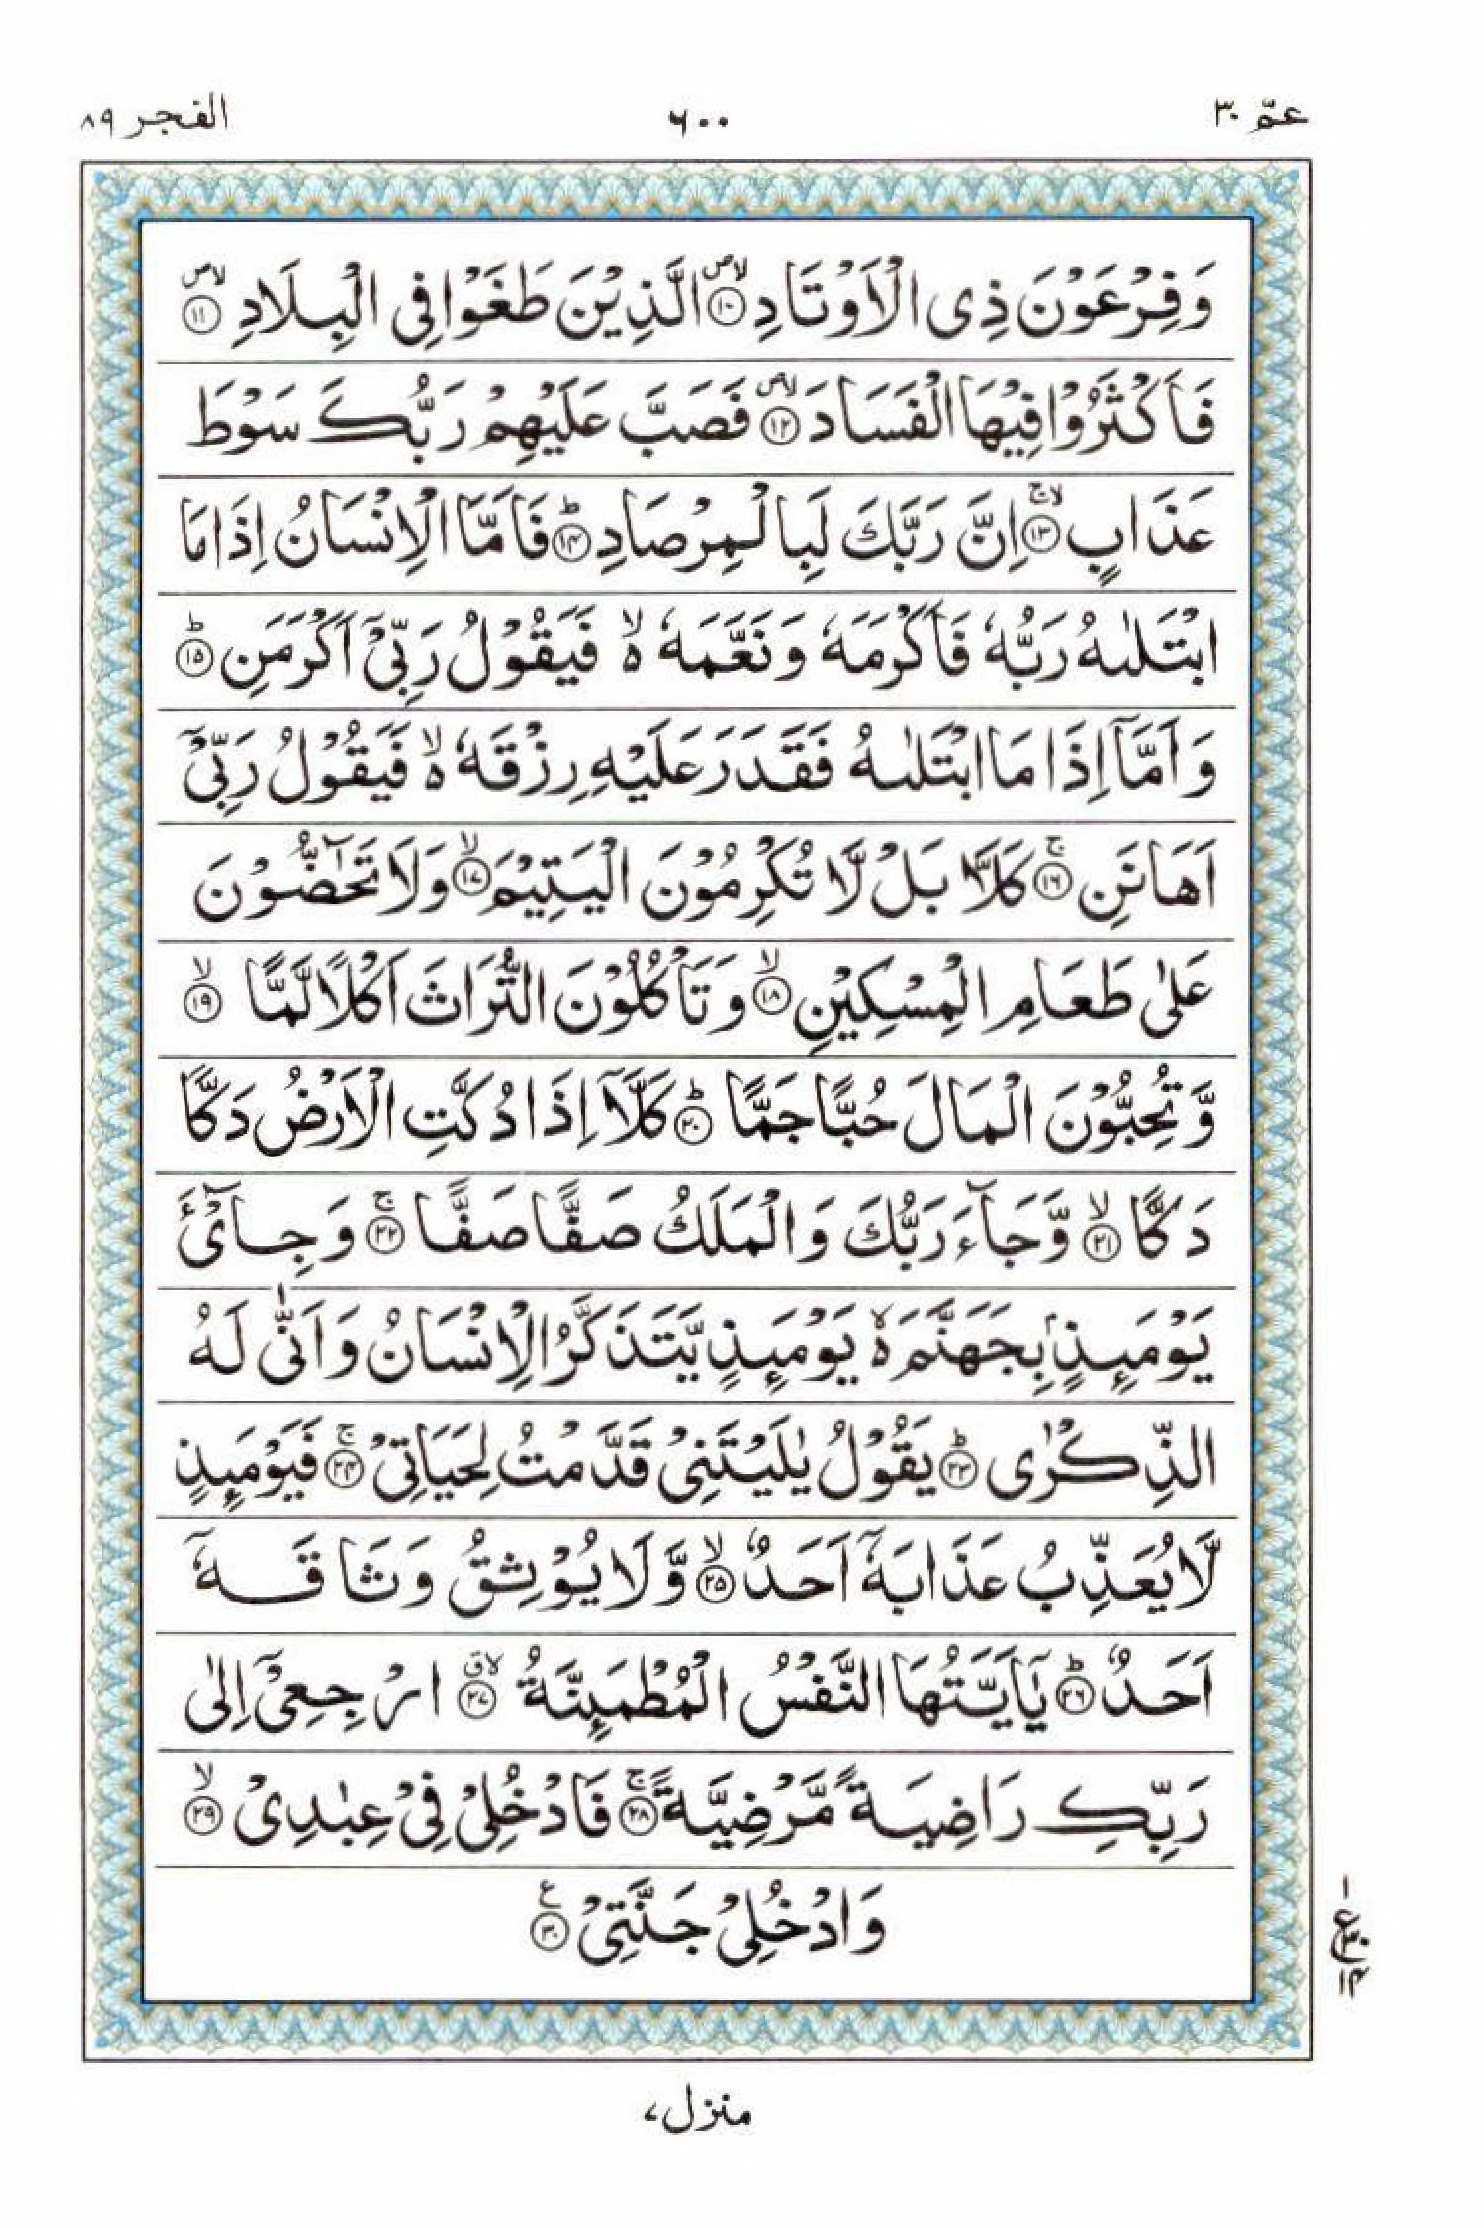 عمّ ٣٠ ٦٠٠ الفجر ٨٩
وَفِرْعَوْنَ ذِی الْاَوْتَادِ ۪ۙ﴿۱۰﴾ الَّذِیْنَ طَغَوْا فِی الْبِلَادِ ۪ۙ﴿۱۱﴾
فَاَكْثَرُوْا فِیْهَا الْفَسَادَ ۪ۙ﴿۱۲﴾ فَصَبَّ عَلَیْهِمْ رَبُّكَ سَوْطَ
عَذَابٍ ۚۙ﴿۱۳﴾ اِنَّ رَبَّكَ لَبِالْمِرْصَادِ ؕ﴿۱۴﴾ فَاَمَّا الْاِنْسَانُ اِذَا مَا
ابْتَلٰىهُ رَبُّهٗ فَاَكْرَمَهٗ وَ نَعَّمَهٗ ۙ۬ فَیَقُوْلُ رَبِّیْۤ اَكْرَمَنِ ؕ﴿۱۵﴾
وَ اَمَّاۤ اِذَا مَا ابْتَلٰىهُ فَقَدَرَ عَلَیْهِ رِزْقَهٗ ۙ۬ فَیَقُوْلُ رَبِّیْۤ
اَهَانَنِ ۚ﴿۱۶﴾ كَلَّا بَلْ لَّا تُكْرِمُوْنَ الْیَتِیْمَ ۙ﴿۱۷﴾ وَلَا تَحٰٓضُّوْنَ
عَلٰی طَعَامِ الْمِسْكِیْنِ ۙ﴿۱۸﴾ وَ تَاْكُلُوْنَ التُّرَاثَ اَكْلًا لَّمًّا ۙ﴿۱۹﴾
وَّ تُحِبُّوْنَ الْمَالَ حُبًّا جَمًّا ؕ﴿۲۰﴾ كَلَّاۤ اِذَا دُكَّتِ الْاَرْضُ دَكًّا
دَكًّا ۙ﴿۲۱﴾ وَّ جَآءَ رَبُّكَ وَ الْمَلَكُ صَفًّا صَفًّا ۚ﴿۲۲﴾ وَ جِایْٓءَ
یَوْمَىِٕذٍۭ بِجَهَنَّمَ ۬ۙ یَوْمَىِٕذٍ یَّتَذَكَّرُ الْاِنْسَانُ وَ اَنّٰی لَهُ
الذِّكْرٰی ؕ﴿۲۳﴾ یَقُوْلُ یٰلَیْتَنِیْ قَدَّمْتُ لِحَیَاتِیْ ۚ﴿۲۴﴾ فَیَوْمَىِٕذٍ
لَّا یُعَذِّبُ عَذَابَهٗۤ اَحَدٌ ۙ﴿۲۵﴾ وَّ لَا یُوْثِقُ وَثَاقَهٗۤ
اَحَدٌ ؕ﴿۲۶﴾ یٰۤاَیَّتُهَا النَّفْسُ الْمُطْمَىِٕنَّةُ ۗۙ﴿۲۷﴾ ارْجِعِیْۤ اِلٰی
رَبِّكِ رَاضِیَةً مَّرْضِیَّةً ۚ﴿۲۸﴾ فَادْخُلِیْ فِیْ عِبٰدِیْ ۙ﴿۲۹﴾
وَ ادْخُلِیْ جَنَّتِیْ ﴿۳۰﴾ ع
منزل ٧